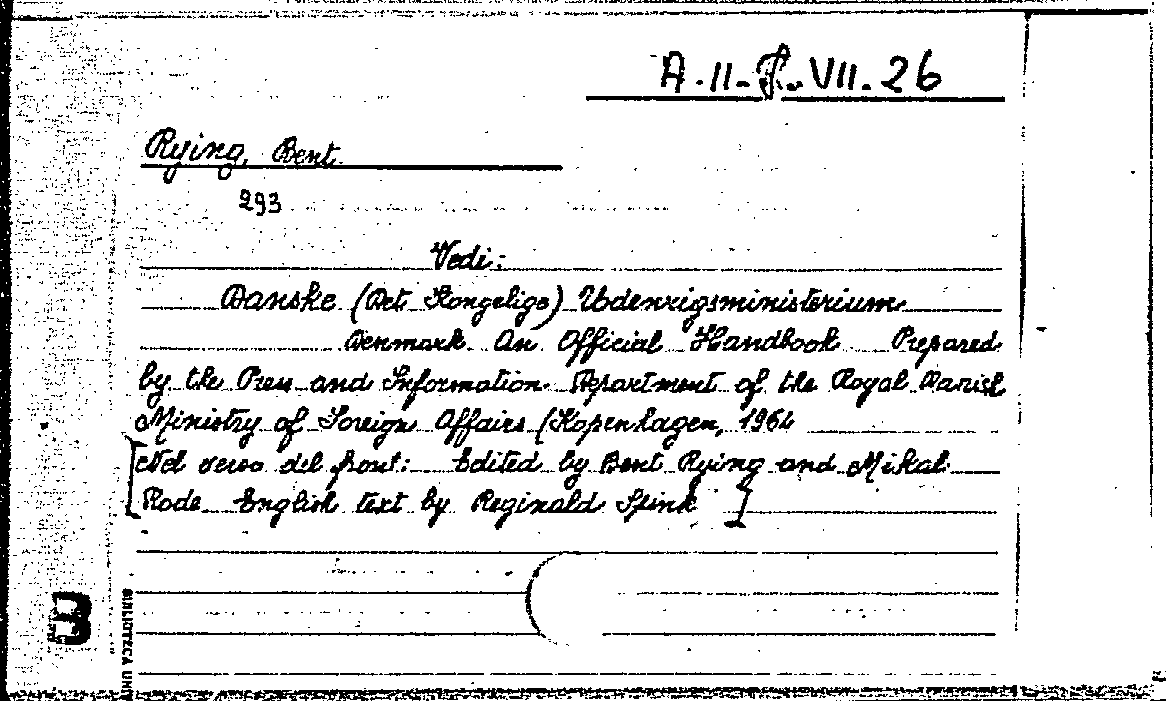 A.II-F.VII.26
Rying, Bent.
293
Vedi:
Danske (Det Kongelige) Udenrigsministerium
Denmark. An Official Handbook Prepared
by the Press and Information Department of the Royal Danish
Ministry of Foreign Affairs (Kopenhagen, 1964
[Nel verso del front: Edited by Bent Rying and Mikal
Rode English text by Reginald Spink ]
B
BIBLIOTECA UNI